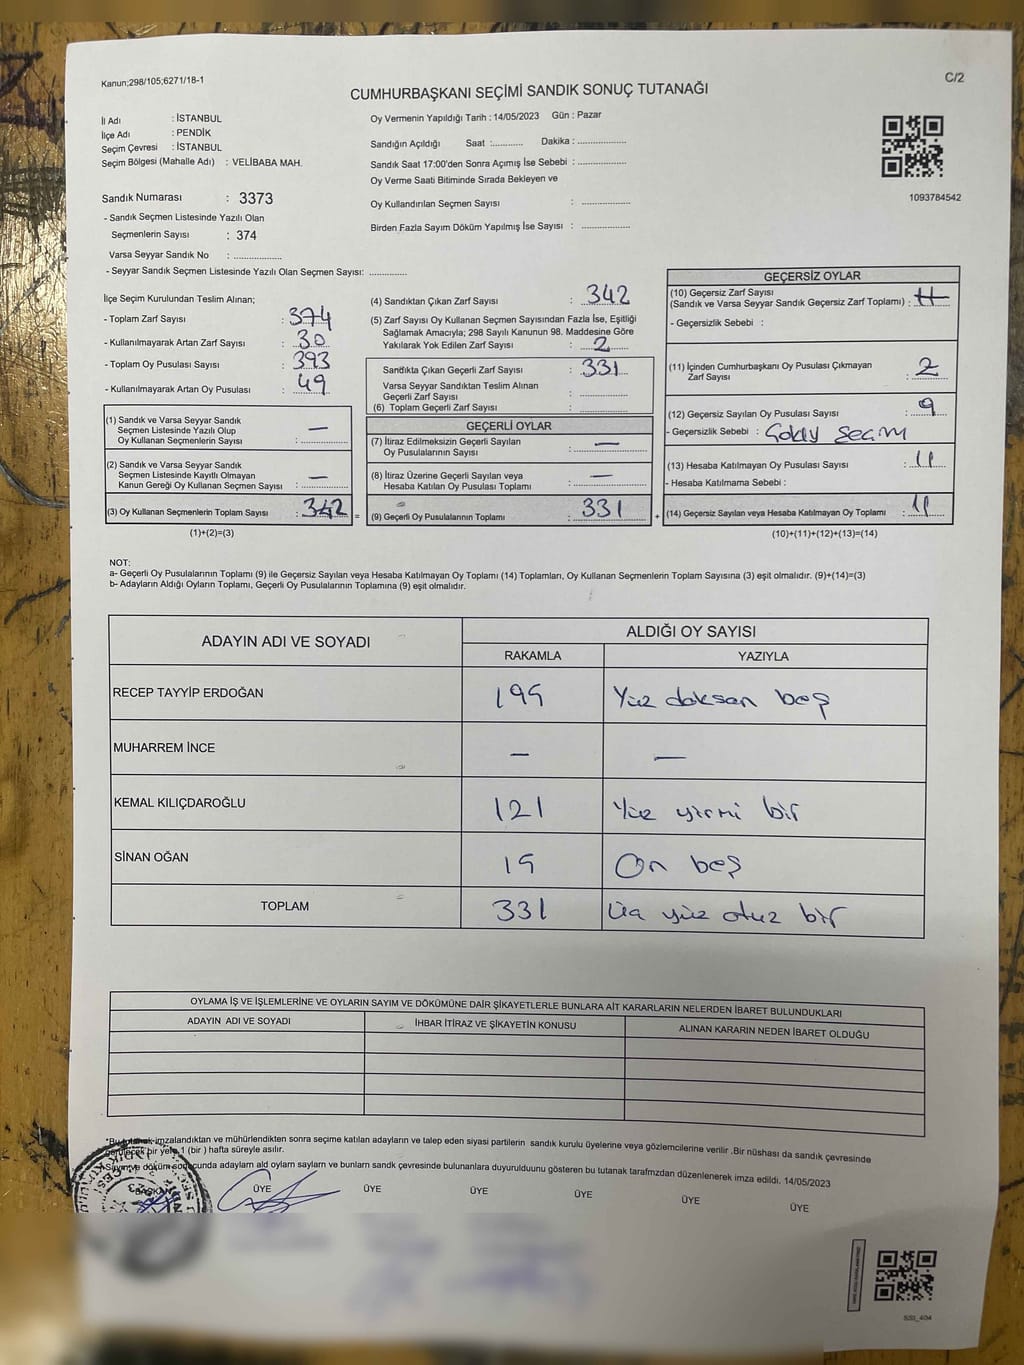 Kanun;298/105;6271/18-1
C/2
CUMHURBAŞKANI SEÇİMİ SANDIK SONUÇ TUTANAĞI
İl Adı : İSTANBUL
İlçe Adı : PENDİK
Seçim Çevresi : İSTANBUL
Seçim Bölgesi (Mahalle Adı) : VELİBABA MAH.
Sandık Numarası : 3373
- Sandık Seçmen Listesinde Yazılı Olan
Seçmenlerin Sayısı : 374
Varsa Seyyar Sandık No : ..............
- Seyyar Sandık Seçmen Listesinde Yazılı Olan Seçmen Sayısı: ...........
Oy Vermenin Yapıldığı Tarih : 14/05/2023 Gün : Pazar
Sandığın Açıldığı Saat :.......... Dakika : ..............
Sandık Saat 17:00'den Sonra Açımış İse Sebebi : ..............
Oy Verme Saati Bitiminde Sırada Bekleyen ve
Oy Kullandırılan Seçmen Sayısı : ..............
Birden Fazla Sayım Döküm Yapılmış İse Sayısı : ..............
1093784542
İlçe Seçim Kurulundan Teslim Alınan;
- Toplam Zarf Sayısı : 374
- Kullanılmayarak Artan Zarf Sayısı : 30
- Toplam Oy Pusulası Sayısı : 393
- Kullanılmayarak Artan Oy Pusulası : 49
(1) Sandık ve Varsa Seyyar Sandık
Seçmen Listesinde Yazılı Olup
Oy Kullanan Seçmenlerin Sayısı : —
(2) Sandık ve Varsa Seyyar Sandık
Seçmen Listesinde Kayıtlı Olmayan
Kanun Gereği Oy Kullanan Seçmen Sayısı : —
(3) Oy Kullanan Seçmenlerin Toplam Sayısı : 342
(1)+(2)=(3)
=
(4) Sandıktan Çıkan Zarf Sayısı : 342
(5) Zarf Sayısı Oy Kullanan Seçmen Sayısından Fazla İse, Eşitliği
Sağlamak Amacıyla; 298 Sayılı Kanunun 98. Maddesine Göre
Yakılarak Yok Edilen Zarf Sayısı : 2
Sandıkta Çıkan Geçerli Zarf Sayısı : 331
Varsa Seyyar Sandıktan Teslim Alınan
Geçerli Zarf Sayısı : ..............
(6) Toplam Geçerli Zarf Sayısı : ..............
GEÇERLİ OYLAR
(7) İtiraz Edilmeksizin Geçerli Sayılan
Oy Pusulalarının Sayısı : —
(8) İtiraz Üzerine Geçerli Sayılan veya
Hesaba Katılan Oy Pusulası Toplamı : —
(9) Geçerli Oy Pusulalarının Toplamı : 331
+
GEÇERSİZ OYLAR
(10) Geçersiz Zarf Sayısı
(Sandık ve Varsa Seyyar Sandık Geçersiz Zarf Toplamı) :
- Geçersizlik Sebebi :
(11) İçinden Cumhurbaşkanı Oy Pusulası Çıkmayan
Zarf Sayısı : 2
(12) Geçersiz Sayılan Oy Pusulası Sayısı : 9
- Geçersizlik Sebebi :
(13) Hesaba Katılmayan Oy Pusulası Sayısı : 11
- Hesaba Katılmama Sebebi :
(14) Geçersiz Sayılan veya Hesaba Katılmayan Oy Toplamı : 11
(10)+(11)+(12)+(13)=(14)
NOT:
a- Geçerli Oy Pusulalarının Toplamı (9) ile Geçersiz Sayılan veya Hesaba Katılmayan Oy Toplamı (14) Toplamları, Oy Kullanan Seçmenlerin Toplam Sayısına (3) eşit olmalıdır. (9)+(14)=(3)
b- Adayların Aldığı Oyların Toplamı, Geçerli Oy Pusulalarının Toplamına (9) eşit olmalıdır.
ADAYIN ADI VE SOYADI ALDIĞI OY SAYISI
RAKAMLA YAZIYLA
RECEP TAYYİP ERDOĞAN 195 Yüz doksan beş
MUHARREM İNCE — —
KEMAL KILIÇDAROĞLU 121 Yüz yirmi bir
SİNAN OĞAN 15 On beş
TOPLAM 331 Üç yüz otuz bir
OYLAMA İŞ VE İŞLEMLERİNE VE OYLARIN SAYIM VE DÖKÜMÜNE DAİR ŞİKAYETLERLE BUNLARA AİT KARARLARIN NELERDEN İBARET BULUNDUKLARI
ADAYIN ADI VE SOYADI İHBAR İTİRAZ VE ŞİKAYETİN KONUSU ALINAN KARARIN NEDEN İBARET OLDUĞU
*Bu tutanak imzalandıktan ve mühürlendikten sonra seçime katılan adayların ve talep eden siyasi partilerin sandık kurulu üyelerine veya gözlemcilerine verilir .Bir nüshası da sandık çevresinde
görülecek bir yere 1 (bir ) hafta süreyle asılır.
Sayım ve döküm sonucunda adayların ald oyların sayların ve bunların sandk çevresinde bulunanlara duyurulduunu gösteren bu tutanak tarafmzdan düzenlenerek imza edildi. 14/05/2023
BAŞKAN ÜYE ÜYE ÜYE ÜYE ÜYE ÜYE
SSİ_404